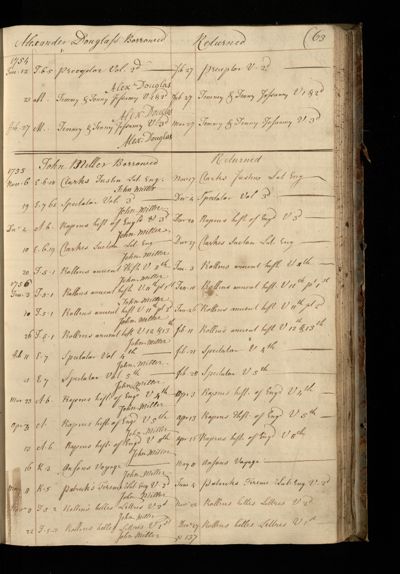 Alexander Douglass Borrowed Returned 63
1754
12 T.6.5 Preceptor Vol. 2d feb 27 preceptor V 2d
Alex Douglas
Jemmy & Jenny Jessamy V 1 & 2d feb 27 Jemmy & Jenny Jessamy V 1 & 2d
Alex Douglas
feb 27 Jemmy & Jenny Jessamy V 3d Mar 27 Jemmy & Jenny Jessamy V 3d
Alex Douglas
1755 John Miller Borrowed Returned
Nov 6 Clarks Justin Lat Eng Nov 17 Clarks Justin Lat Eng
John Miller
19 E.7 Spectator Vol 3d Dec 2 Spectator Vol 3d
John Miller
Dec 2 A.6 Rapins hist. of Engd V 3d Dec 20 Rapins hist. of Engd V 3d
John Miller
10 E.6.19 Clarkes Justin Lat Eng Clarkes Justin Lat Eng
John Miller
20 F.5.1 Rollins ancient Hist. V Jan 2 Rollins ancient hist. V
1756 John Miller
Jan 3 F.5.1 Rollins ancient hist V 11th pt 1st Rollins ancient hist. V 11th pt 1st
John Miller
10 F.5.1 Rollins ancient hist V 11th pt 2 Jan 26 Rollins ancient hist V 11th pt 2
John Miller
26 F.5.1 Rollins ancient hist. V 12 & 13th feb 11 Rollins ancient hist V 12 & 13th
John Miller
feb 11 E.7 Spectator Vol 4th feb. 21 Spectator V 4th
John Miller
21 E.7 Spectator Vol 5th feb 28 Spectator V 5th
John Miller
Mar 23 A.6 Rapins hist of Engd V 4th apr 3 Rapins hist. of Engd V 4th
John Miller
apr 3 A Rapins hist. of Engd V 5th apr 13 Rapins Hist. of Engd V 5th
John Miller
13 A.6 Rapins hist. of Engd V 6th Rapins hist. of Engd V 6th
John Miller
16 K.2 Ansons Voyage May 8 Ansons Voyage
John Miller
May 8 K.5 Patricks Terence Lat Eng V 2d June 4 Patricks Terence Lat Eng V 2d
John Miller
F.5.2 Rollins belles Lettres V 2d Nov 22 Rollins belles Lettres V 2d
John Miller
22 F.5.2 Rollins belles Lettres V 1st Nov 27 Rollins belles Lettres V 1st
John Miller p 137